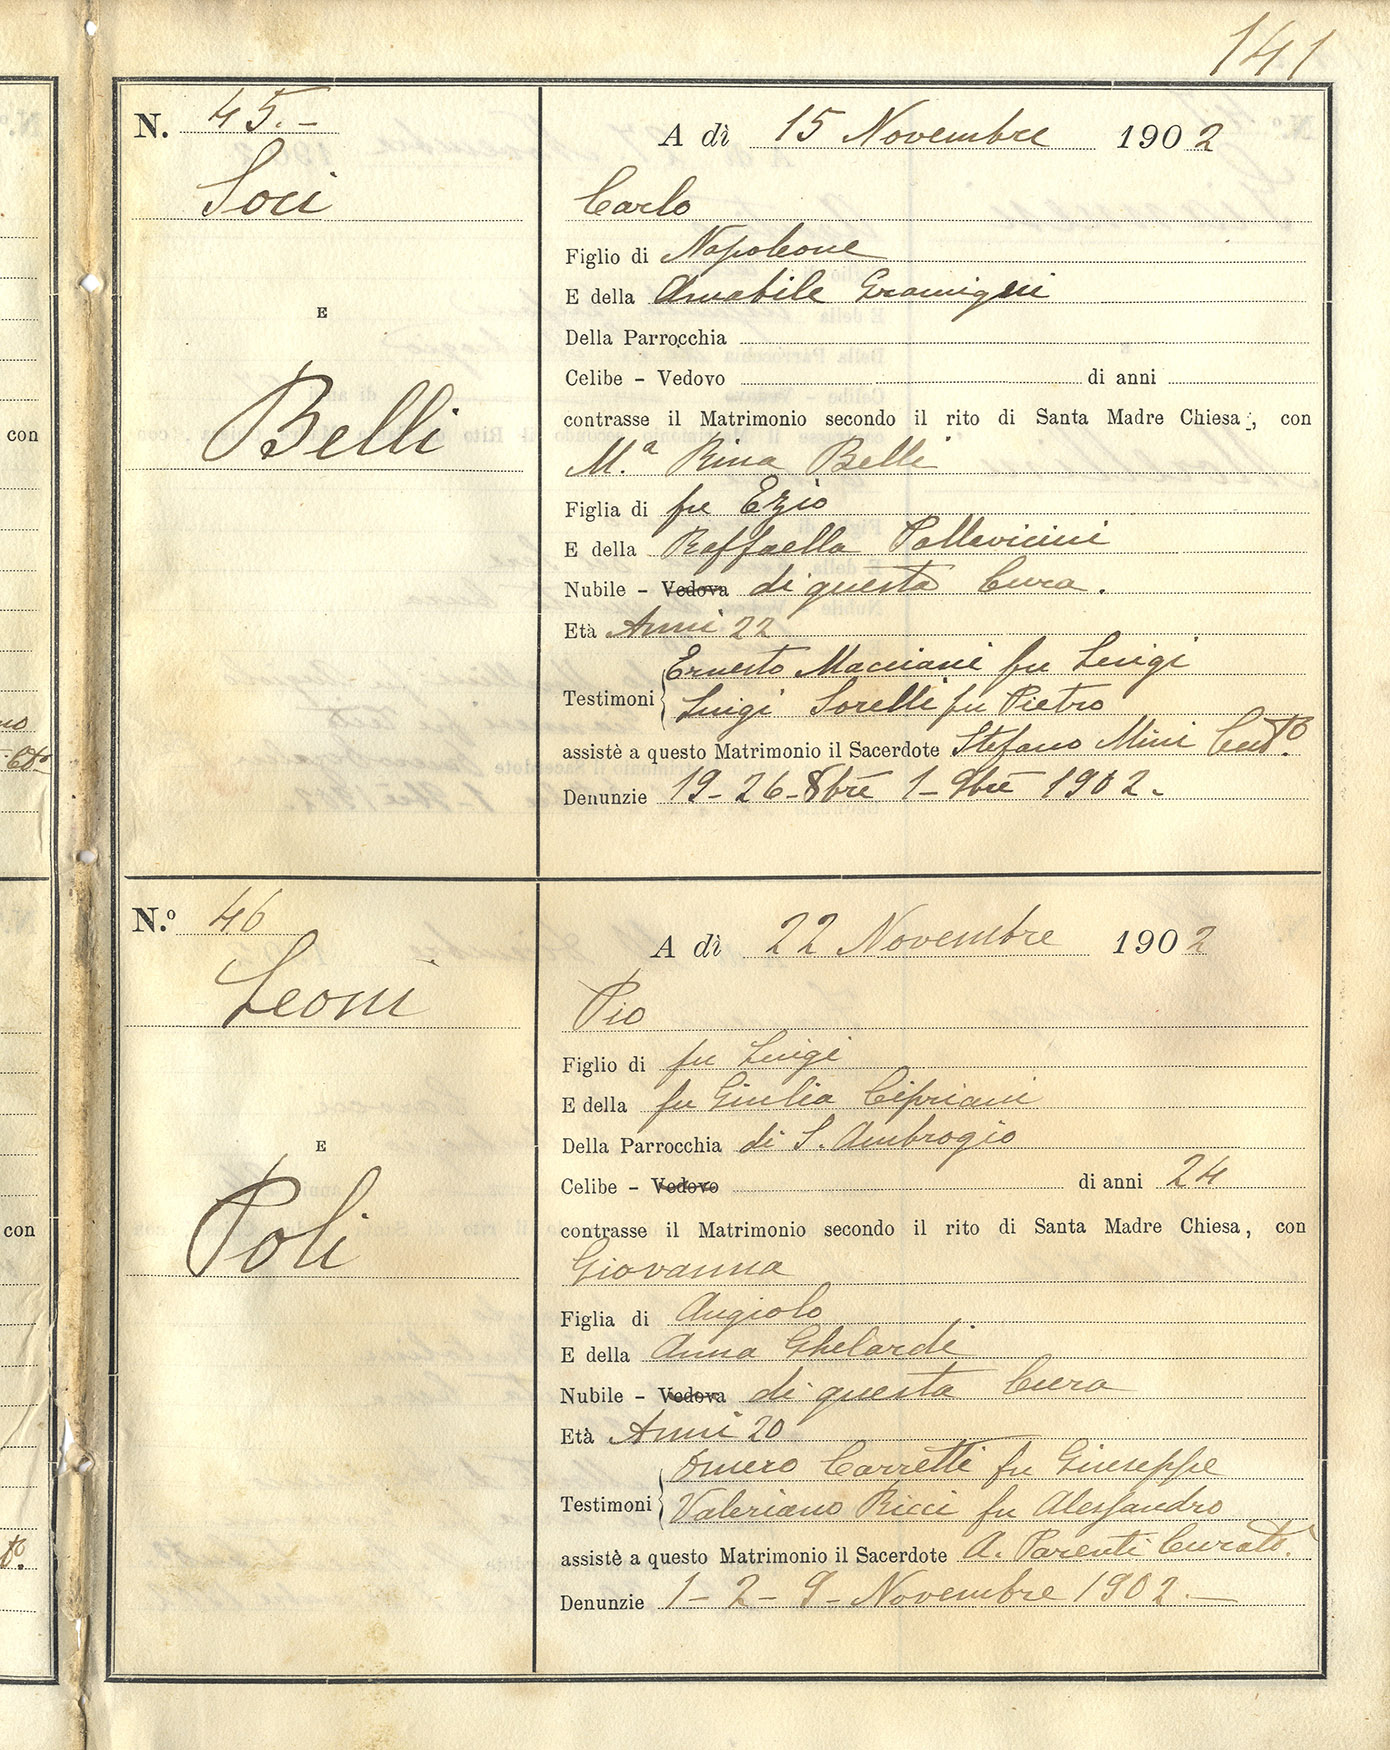 141
N. 45.-
A dì 15 Novembre 1902
Soci
Carlo
Figlio di Napoleone
E della Amabile Gramigni
E
Della Parrocchia
Celibe - Vedovo di anni
Belli
contrasse il Matrimonio secondo il rito di Santa Madre Chiesa, con
M.ª Rina Belli
Figlia di fu Ezio
E della Raffaella Pallavicini
Nubile - Vedova di questa Cura.
Età Anni 22
Ernesto Macciani fu Luigi
Testimoni
Luigi Sorelli fu Pietro
assistè a questo Matrimonio il Sacerdote Stefano Mini
Denunzie 19-26-8bre 1-9bre 1902.
N.º 46
A dì 22 Novembre 1902
Leoni
Pio
Figlio di fu Luigi
E della fu Giulia Cipriani
E
Della Parrocchia di S. Ambrogio
Celibe - Vedovo di anni 24
Poli
contrasse il Matrimonio secondo il rito di Santa Madre Chiesa, con
Giovanna
Figlia di Angiolo
E della Anna Ghelardi
Nubile - Vedova di questa Cura
Età Anni 20
Omero Carretti fu Giuseppe
Testimoni
Valeriano Ricci fu Alessandro
assistè a questo Matrimonio il Sacerdote A. Parenti Curato.
Denunzie 1-2-9-Novembre 1902.-
con
con